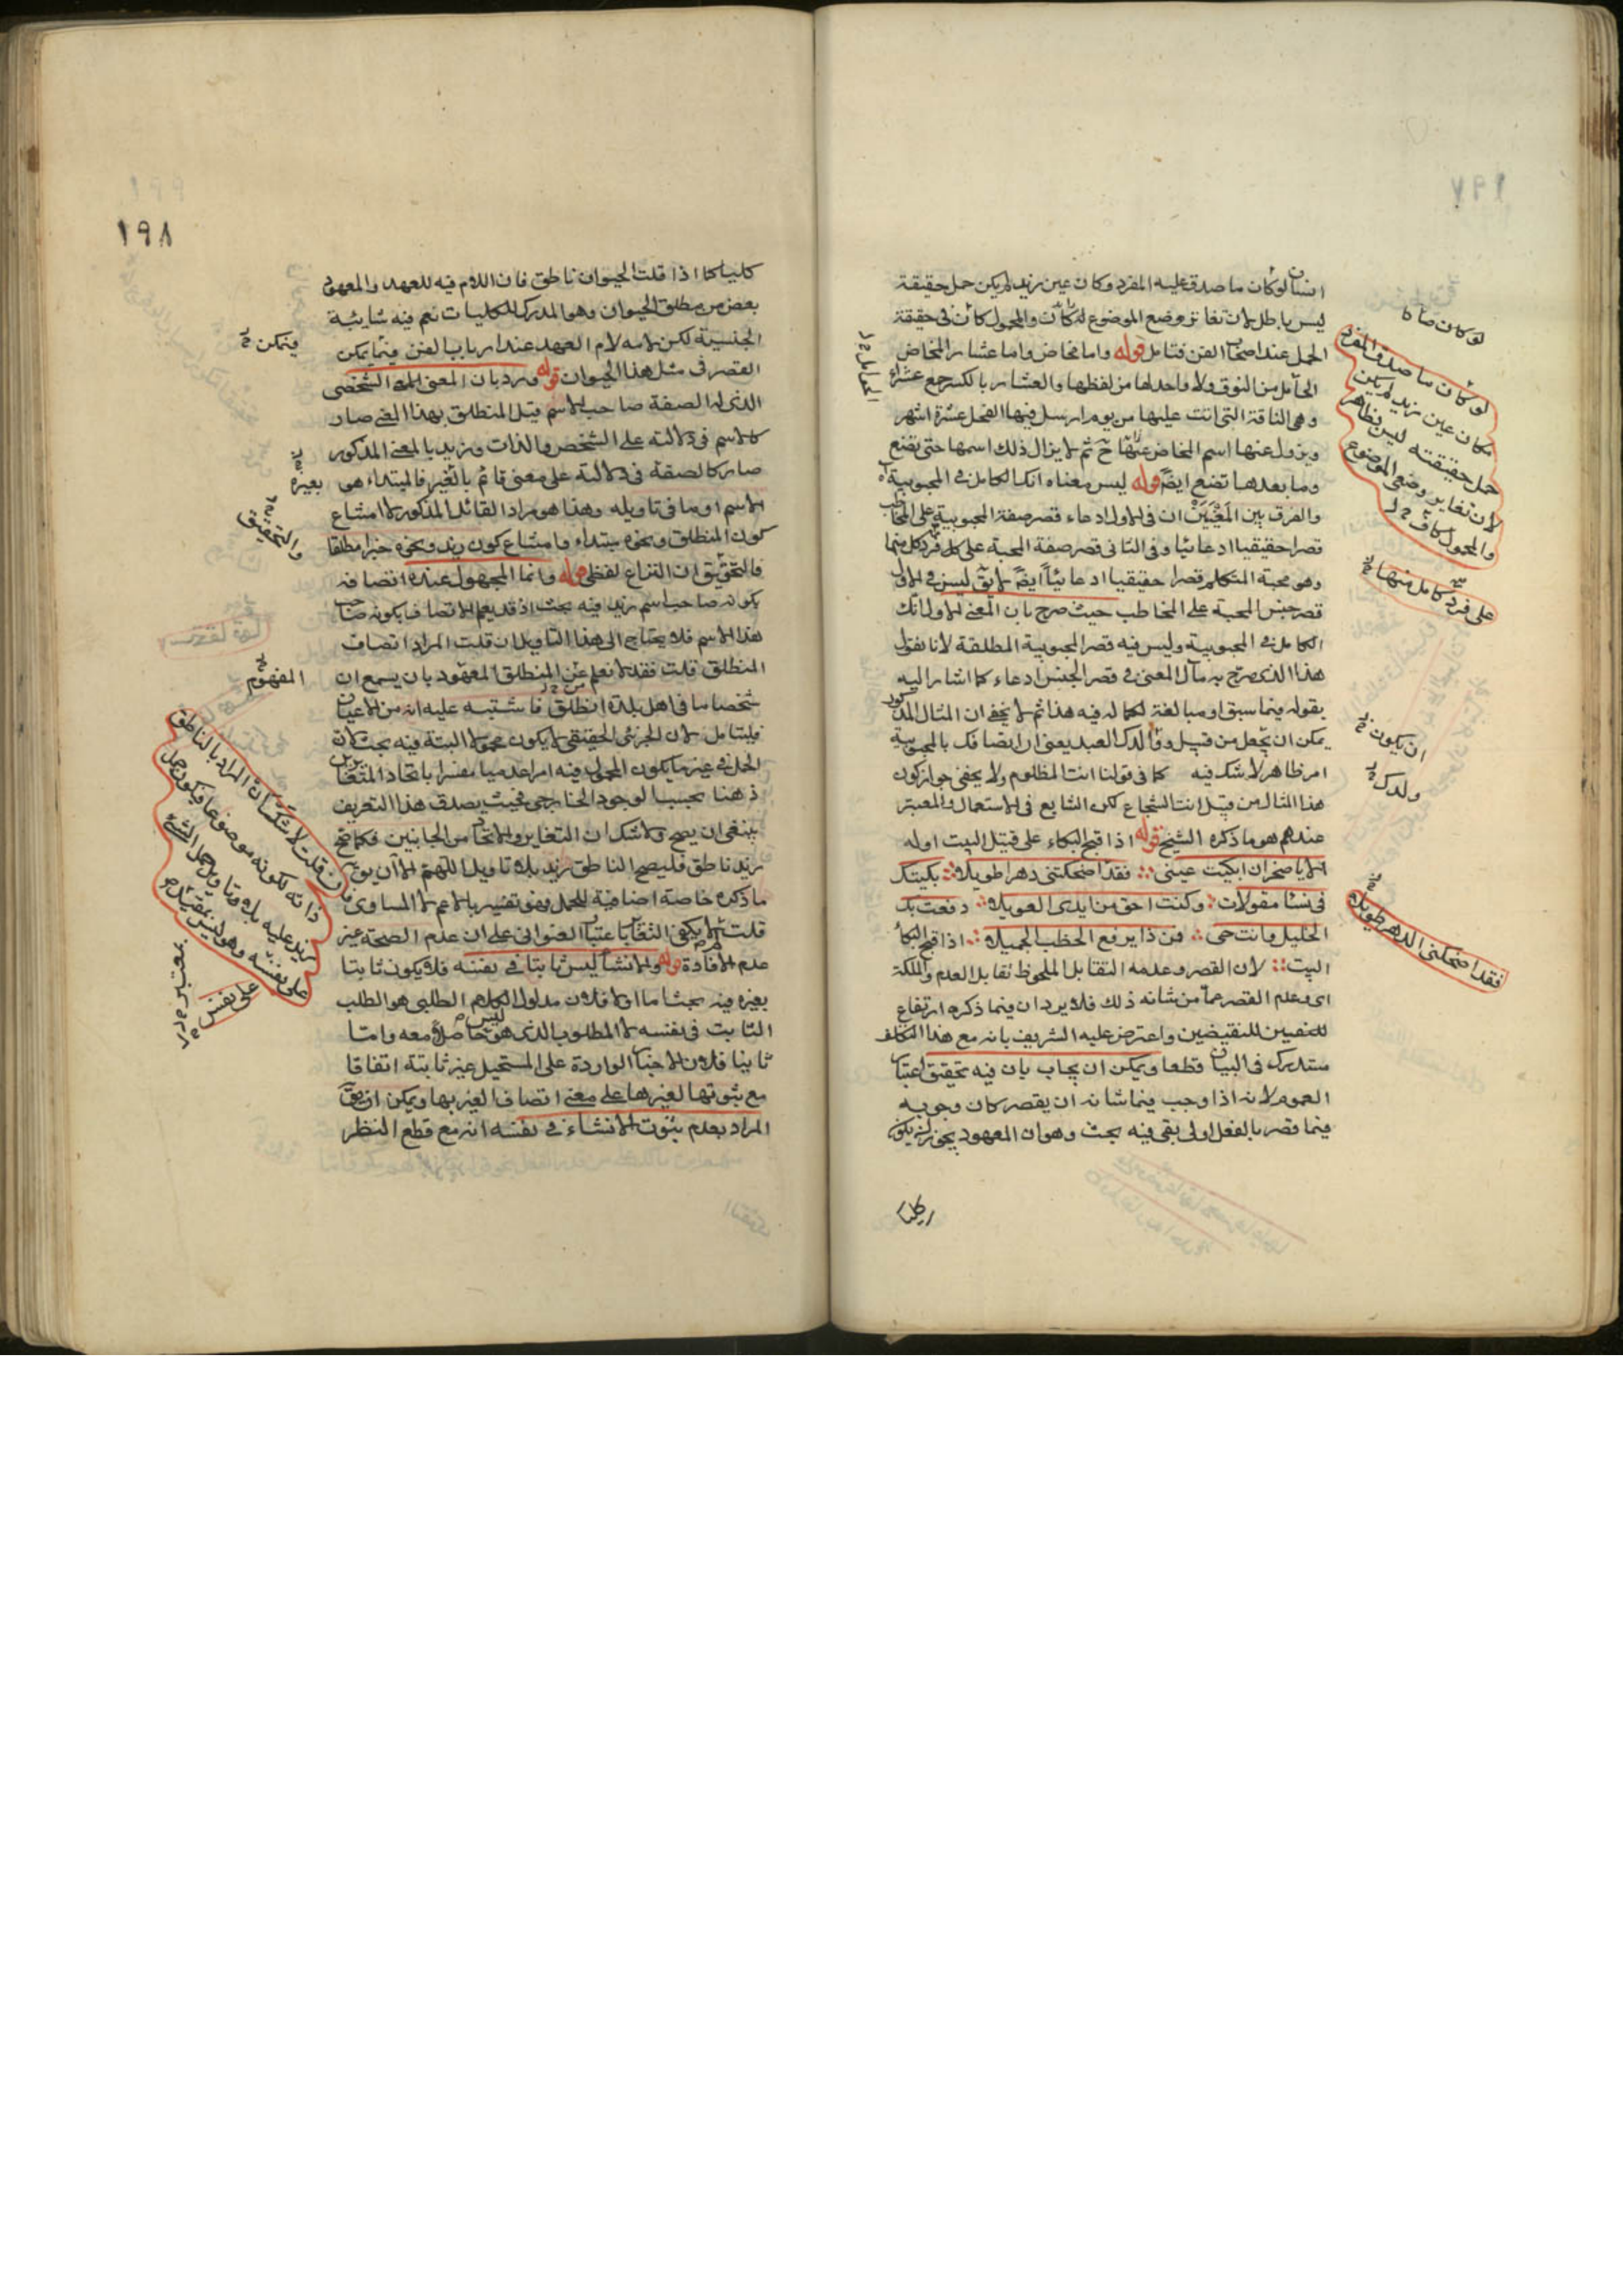 انسان لو كان ما صدق عليه المفرد وكان عين زيد لم يكن حمل حقيقة
ليس باطل لان تغاير وضع الموضوع له كان والمحمول كان في حقيقة
الحمل عند اصحاب الفن فتامل قوله واما مخاض واما عشار المخاض
الحامل من النوق ولا واحد لها من لفظها والعشار بالكسر جمع عشراء
وهي الناقة التي اتت عليها من يوم ارسل فيها الفحل عشرة اشهر
ويزول عنها اسم المخاض عنها ح ثم لا يزال ذلك اسمها حتى تضع
وما بعدها تضع ايضا قوله ليس معناه انك الكامل في المحبوبية
والفرق بين المعنيين ان في الاول ادعاء قصر صفة المحبوبية على المخاطب
قصرا حقيقيا ادعائيا وفي الثاني قصر صفة المحبة على كل فرد كل منها
وهو محبة المتكلم قصرا حقيقيا ادعائيا ايضا لا يق ليس في الاول
قصر جنس المحبة على المخاطب حيث صرح بان المعنى الاول انك
الكامل في المحبوبية وليس فيه قصر المحبوبية المطلقة لانا نقول
هذا الذي صرح به مآل المعنى في قصر الجنس ادعاء كما اشار اليه
بقوله فيما سبق او مبالغة لكماله فيه هذا ثم لا يخفى ان المثال المذكور
يمكن ان يجعل من قبيل ووالدك العبد يعني ان اتصافك بالمحبوبية
امر ظاهر لا شك فيه كما في قولنا انت المظلوم ولا يخفى جواز كون
هذا المثال من قبيل انت الشجاع لكن الشايع في الاستعمال والمعتبر
عندهم هو ما ذكره الشيخ قوله اذا قبح البكاء على قتيل البيت اوله
الا يا صخر ان ابكيت عيني فقد اضحكتني دهرا طويلا بكيتك
في نساء معولات وكنت احق من ابدى العويلا دفعت بك
الجليل وانت حي فمن ذا يرفع الخطب الجميلا اذا قبح البكا
البيت لان القصر وعدمه التقابل الملحوظ تقابل العدم والملكة
اي وعدم القصر عما من شانه ذلك فلا يرد ان فيما ذكره ارتفاع
للنقيضين واعترض عليه الشريف بانه مع هذا التكلف
مستدرك في البيان قطعا ويمكن ان يجاب بان فيه تحقيق اعتبار
العموم لانه اذا وجب فيما شانه ان يقصر كان وجوبه
فيما قصر بالفعل اولى بقي فيه بحث وهو ان المعهود يجوز ان يكون
كليا
لو كان صا
لو كان ما صدق المفرد
كان عين زيد لم يكن
حمل حقيقته ليس بظاهر
لان تغاير وضعي الموضوع
والمحمول كاف
على فرد كامل منها
ان يكون
ولدك
فقد اضحكني الدهر طويلا
١٩٨
كليا كما اذا قلت الحيوان ناطق فان اللام فيه للعهد والمعهود
بعض من مطلق الحيوان وهو المدرك للكليات نعم فيه شائبة
الجنسية لكن لامه لام العهد عند ارباب الفن فيما يمكن
القصر في مثل هذا الحيوان قوله ورد بان المعنى الشخص
الذي له الصفة صاحب الاسم قيل المنطلق بهذا المعنى صار
كالاسم في دلالته على الشخص والذات وزيد بالمعنى المذكور
صار كالصفة في دلالته على معنى قائم بالغير فالمبتداء هو
الاسم او ما في تاويله وهذا هو مراد القائل المذكور لا امتناع
كون المنطلق ونحوه مبتداء وامتناع كون زيد ونحوه خبرا مطلقا
فالتحقيق ان النزاع لفظي قوله وانما المجهول عنده اتصافه
بكونه صاحب اسم زيد فيه بحث اذ قد يعلم الاتصاف بكونه صاحب
هذا الاسم فلا يحتاج الى هذا التاويل ان قلت المراد اتصاف
المنطلق قلت فقد لا نعلم عين المنطلق المعهود بان يسمع ان
شخصا ما في اهل بلدة انطلق فاشتبه عليه انه من الاعيان
فليتامل لان الجزئي الحقيقي لا يكون محمولا البتة فيه بحث لان
الحمل في غير ما يكون المحمول فيه امرا عدميا مفسرا باتحاد المتغايرين
ذهنا بحسب الوجود الخارجي فحيث يصدق هذا التعريف
ينبغي ان يصح ولا شك ان التغاير والاتحاد من الجانبين فكما صح
زيد ناطق فليصح الناطق زيد بلا تاويل اللهم الا ان يوجه
ما ذكره خاصة اضافية للحمل فهو تفسير بالاعم لا المساوي
قلت لا يكفي التغاير باعتبار العنواني على ان عدم الصحة غير
عدم الافادة قوله والانشاء ليس ثابتا في نفسه فلا يكون ثابتا
بغيره فيه بحث اما اولا فلان مدلول الكلام الطلبي هو الطلب
الثابت في نفسه لا المطلوب الذي هو ليس حاصلا معه واما
ثانيا فلان الاخبار الواردة على المستحيل غير ثابتة اتفاقا
مع ثبوتها لغيرها على معنى اتصاف الغير بها ويمكن ان يق
المراد بعدم ثبوت الانشاء في نفسه انه مع قطع النظر
فيمكن
بغيره
والتحقيق
المفهوم
فان قلت لا شك ان المراد بالناطق
ذاته لكونه موضوعا فيكون حمل
زيد عليه بلا وتاويل حمل الشيء
على نفسه وهو ليس بمقيد
على نفس
معتبر